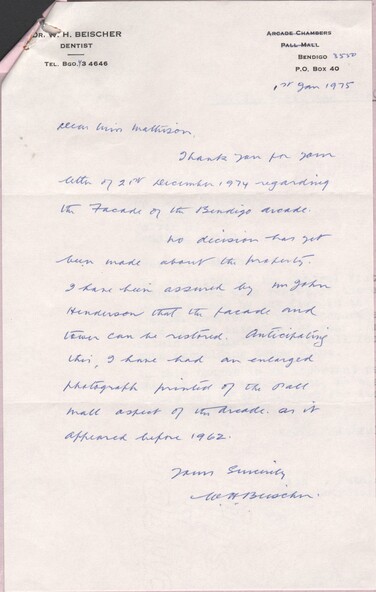 DR. W. H. BEISCHER
DENTIST
TEL. BGO. 43 4646
ARCADE CHAMBERS
PALL MALL
BENDIGO 3550
P.O. BOX 40
1st Jan 1975
Dear Miss Mattinson,
Thank you for your
letter of 21st December 1974 regarding
the Facade of the Bendigo arcade.
No decision has yet
been made about the property.
I have been assured by Mr John
Henderson that the facade and
tower can be restored. Anticipating
this, I have had an enlarged
photograph printed of the Pall
Mall aspect of the Arcade. as it
appeared before 1962.
Yours Sincerely
W. H. Beischer.